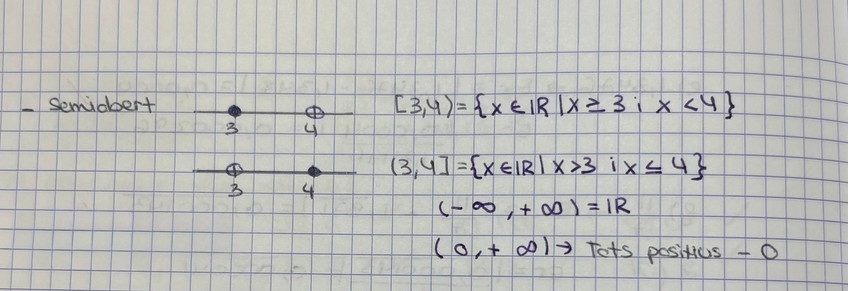 - Semiobert 3 4 [3,4) = {x ∈ IR | x ≥ 3 i x < 4}
3 4 (3,4] = {x ∈ IR | x > 3 i x ≤ 4}
(-∞, +∞) = IR
(0, + ∞) → Tots positius - 0